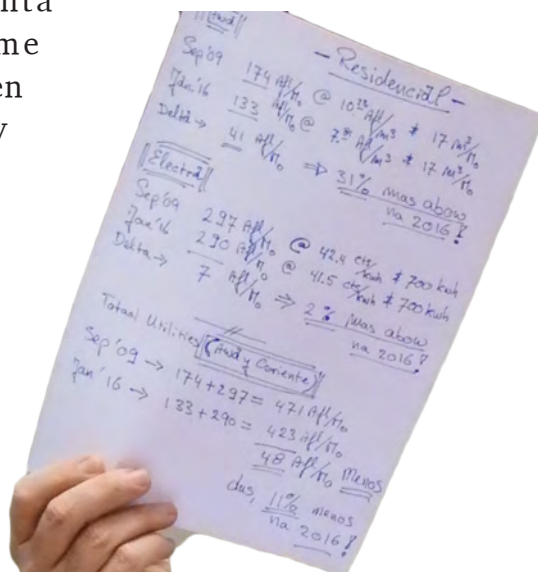 nta
me
en
y
- Residencial -
Sep'09 174 Afl/Mo @ Afl/m³ * 17 m³/Mo
Jan'16 133 Afl/Mo @ Afl/m³ * 17 m³/Mo
Delta → 41 Afl/Mo ⇒ 31% mas abow
na 2016!
Electra
Sep'09 297 Afl/Mo @ 42.4 cts/kwh * 700 kwh
Jan'16 290 Afl/Mo @ 41.5 cts/kwh * 700 kwh
Delta → 7 Afl/Mo ⇒ 2% mas abow
na 2016!
Totaal Utilities (Awa y Coriente)
Sep'09 → 174+297= 471 Afl/Mo
Jan'16 → 133+290= 423 Afl/Mo
48 Afl/Mo Menos
dus, 11% menos
na 2016!